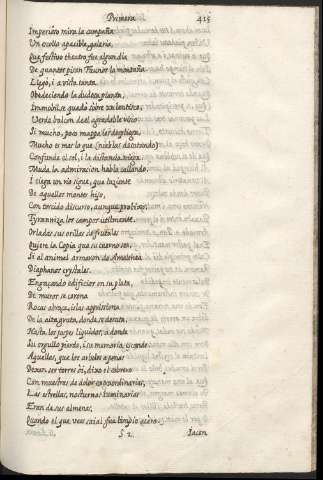 Primera 415
Imperioso mira la campaña
Un escollo apacible, galeria,
Que festivo theatro fue algun dia
De quantos pisan Faunos la montaña.
Llegò, i a vista tanta
Obedeciendo la dudosa planta,
Immobil se quedò sobre un lentisco,
Verde balcon de el agradable risco.
Si mucho, poco mappa les despliega,
Mucho es mas lo que (nieblas desatando)
Confunde el sol, i la distancia niega.
Muda la admiracion habla callando,
I ciega un rio sigue, que luziente
De aquellos montes hijo,
Con torcido discurso, aunque prolixo,
Tyranniza los campos utilmente.
Orladas sus orillas de frutales
Quiere la Copia que su cuerno sea,
Si al animal armaron de Amalthea
Diaphanos crystales.
Engaçando edificios en su plata,
De muros se corona
Rocas abraça, islas aprisiona
De la alta gruta, donde se desata,
Hasta los jaspes liquidos, a donde
Su orgullo pierde, i su memoria esconde
Aquellas, que los arboles apenas
Dexan ser torres oi, dixo el cabrero
Con muestras de dolor extraordinarias,
Las estrellas, nocturnas luminarias
Eran de sus almenas,
Quando el que ves saial fue limpio azero
S 2. Iacen